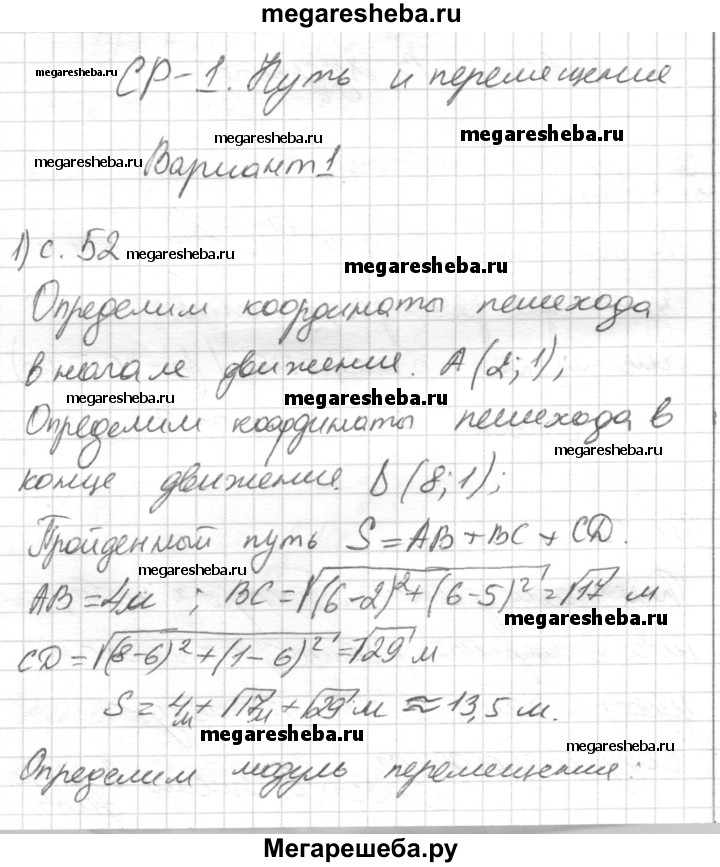 megaresheba.ru
megaresheba.ru
СР-1. Путь и перемещение
megaresheba.ru
megaresheba.ru
megaresheba.ru
Вариант 1
1) с. 52
megaresheba.ru
megaresheba.ru
Определим координаты пешехода
в начале движения. A (2; 1);
megaresheba.ru
Определим координаты пешехода в
megaresheba.ru
конце движения. D (8; 1);
Пройденный путь S = AB + BC + CD.
megaresheba.ru
AB = 4м ; BC = √((6-2)² + (6-5)²) = √17 м
megaresheba.ru
CD = √((8-6)² + (1-6)²) = √29 м
S = 4м + √17м + √29 м ≈ 13,5 м.
megaresheba.ru
megaresheba.ru
Определим модуль перемещения:
Мегарешеба.ру